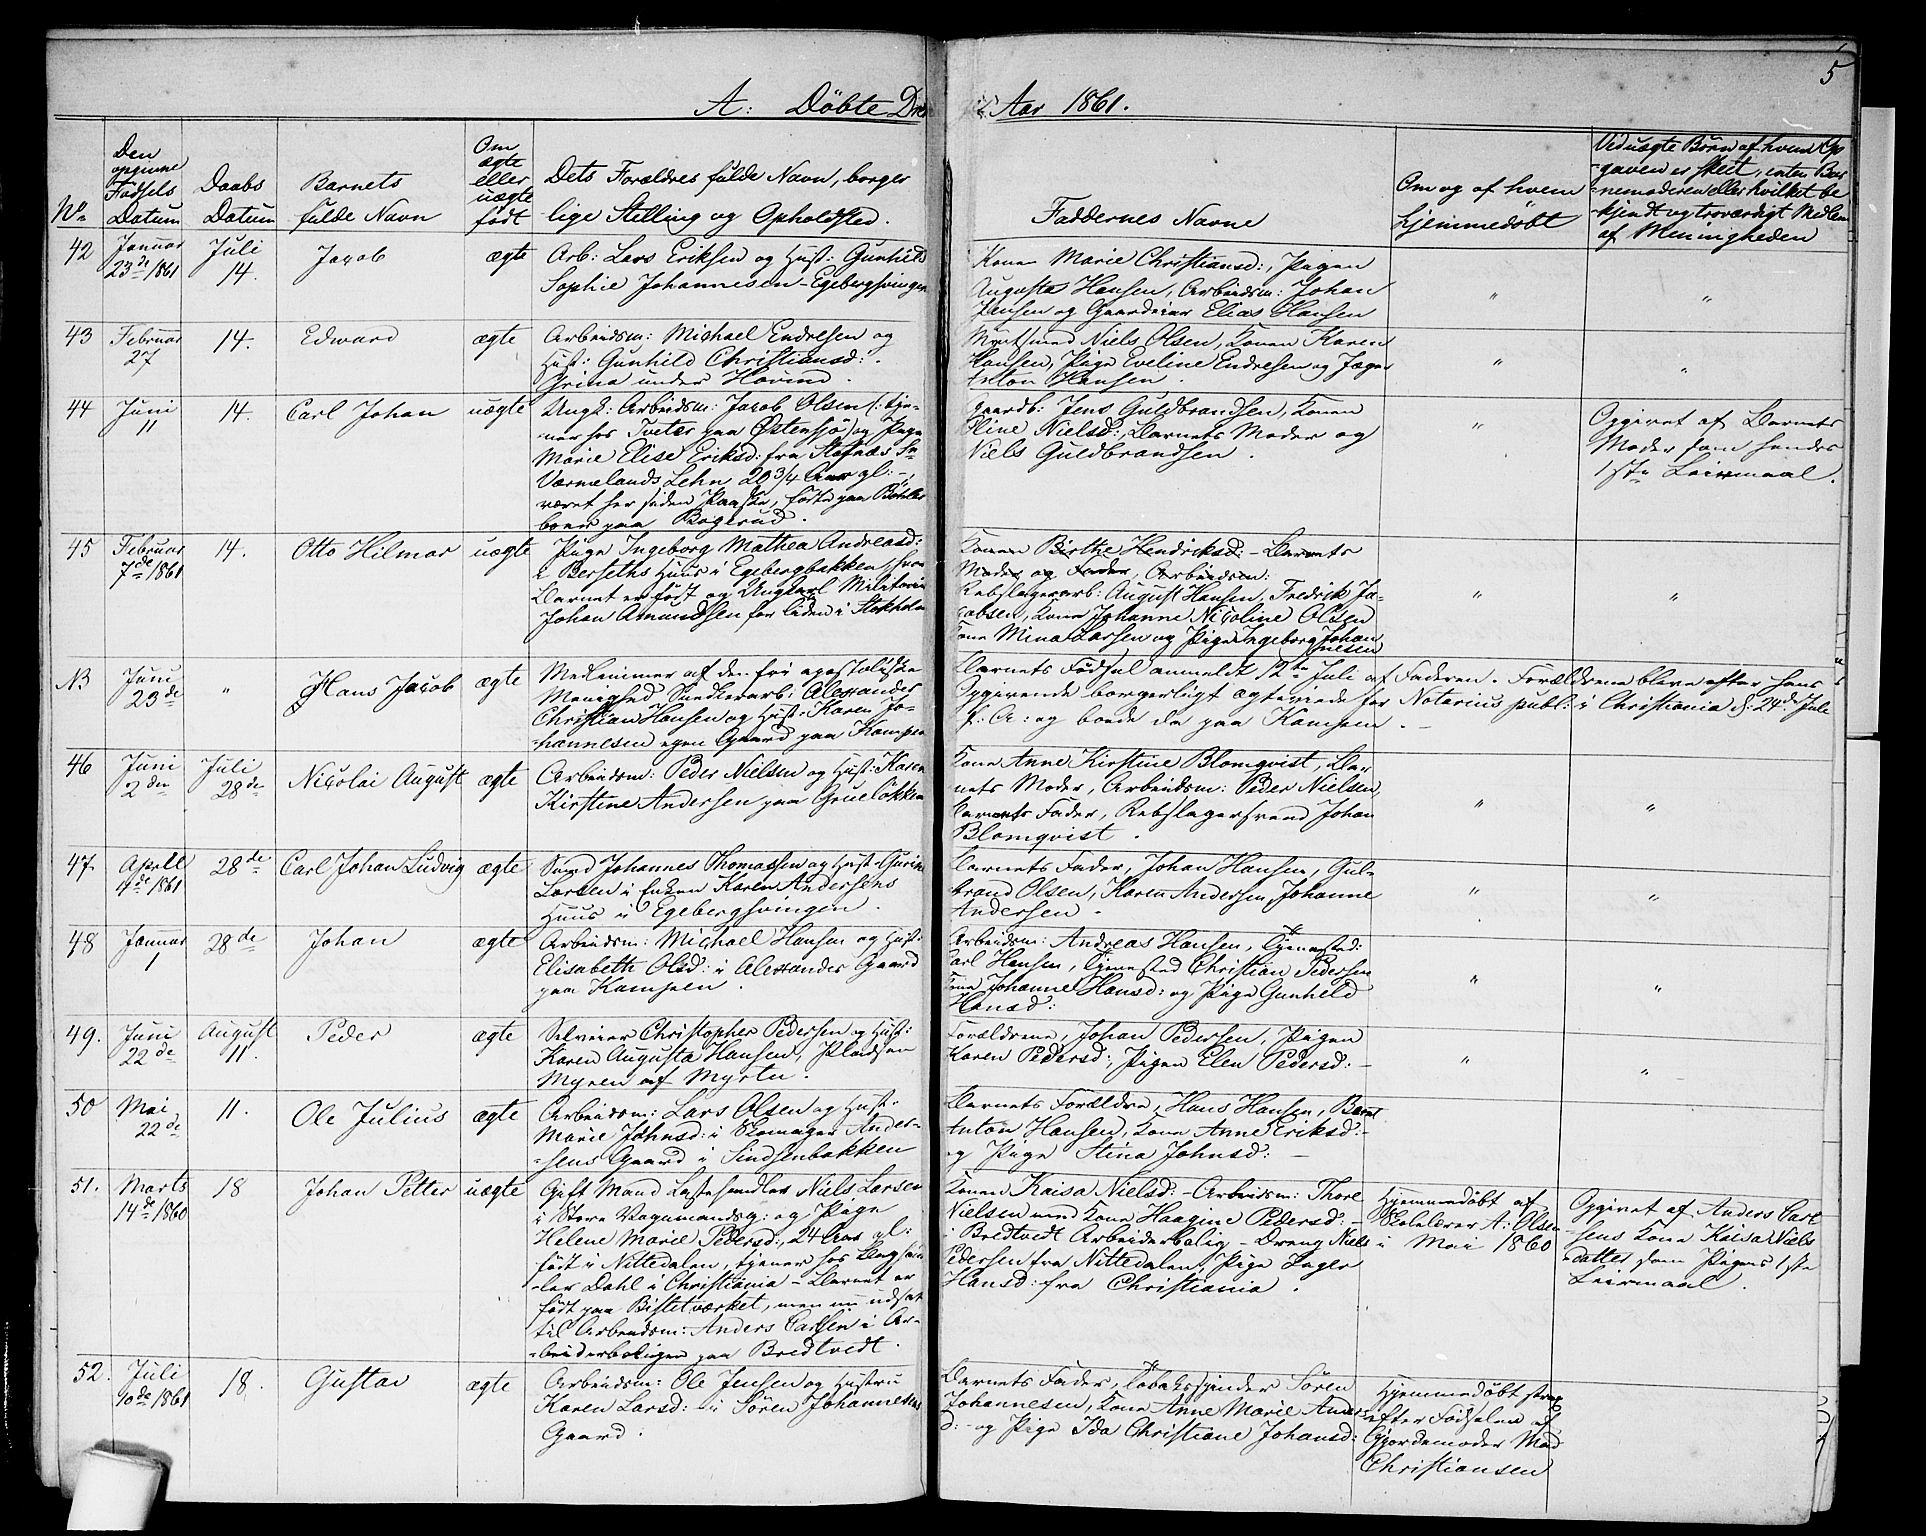 5
A: Döbte Dren Aar 1861.
No
Den opgivne Födsels Datum
Daabs Datum
Barnets fulde Navn
Om ægte eller uægte födt
Dets Forældres fulde Navn, borger
lige Stilling og Opholdsted.
Faddernes Navne
Om og af hvem
hjemmedöbt
Ved uægte Börn af hvem Op
gaven er skeet, enten Bar
nemoderen eller hvilket be
kjendt og troværdigt Medlem
af Menigheden
42 Januar 23de 1861 Juli 14. Jacob ægte
Arb: Lars Eriksen og Hust: Gunhild
Sophie Johannesen - Egebergsvingen
Konen Marie Christiansd:, Pigen
Augusta Hansen, Arbeidsm: Johan
Jansen og Gaardeier Elias Hansen
" "
43 Februar 27 14. Edward ægte
Arbeidsm: Michael Endresen og
Hust: Gunhild Christiansd:
Grina under Hovind.
Niels Olsen, Konen Karen
Hansen, Pige Eveline Endresen og Jæger
Anton Hansen.
" "
44 Juni 11 14. Carl Johan uægte
Ungk: Arbeidsm: Jacob Olsen (: tje-
ner hos Tveter paa Östensjö) og Pige
Marie Elise Eriksd: fra
Værmelands Lehn 20 3/4 Aar gl: -,
været her siden Paaske, födte paa Böler
boer paa Bogerud.
Gaardb: Jens Guldbrandsen, Konen
Oline Nielsd:, Barnets Moder og
Niels Guldbrandsen.
"
Opgivet af Barnets
Moder som hendes
1ste Leiermaal.
45 Februar 7de 1861 14. Otto Hilmar uægte
Pige Ingeborg Mathea Andreasd:
i Berseths Huus i Egebergbakken hvor
Barnet er födt og Ungkarl Militairen
Johan Amundsen for tiden i Stokholm
Konen Birthe Hendriksd: - Barnets
Moder og Fader, Arbeidsm:
Rebslagerarb: August Hansen, Fredrik Ja-
cobsen, Kone Johanne Nicoline Olsen
Kone Mina Larsen og Pige Ingeborg Johan
nesen
" "
NB Juni 23de " Hans Jacob ægte
Medlemmer af den fri apostoliske
Menighed Snedkerarb: Alexander
Christian Hansen og Hust: Karen Jo-
hannesen egen Gaard paa Kampen
Barnets Födsel anmeldt 12te Juli af Faderen. Forældrene bleve efter hans
Opgivende borgerligt ægteviede for Notarius publ: i Christiania d: 24de Juli
f: A: og boede da paa Kampen. -
46 Juni 2den Juli 28de Nicolai August ægte
Arbeidsm: Peder Nielsen og Hust: Karen
Kirstine Andersen paa Gruelökken
Kone Anne Kirstine Blomqvist, Bar
nets Moder, Arbeidsm: Peder Nielsen,
Barnets Fader, Rebslagersvend Johan
Blomqvist.
" "
47. April 4de 1861 28de Carl Johan Ludvig ægte
Svend Johannes Thomassen og Hust: Gurine
Larsen i Enken Karen Andersens
Huus i Egebergsvingen.
Barnets Fader, Johan Hansen, Gul-
brand Olsen, Karen Andersen, Johanne
Andersen.
" "
48 Januar 1 28de Johan ægte
Arbeidsm: Michael Hansen og Hust:
Elisabeth Olsd: i Alexander Gaard
paa Kampen.
Arbeidsm: Andreas Hansen, Tjenestd:
Carl Hansen, Tjenestd Christian Pedersen
Kone Johanne Hansd: og Pige Gunhild
Hansd:
" "
49. Juni 22de August 11. Peder ægte
Selveier Christopher Pedersen og Hust:
Karen Augusta Hansen, Pladsen
Myren af Myrer.
Forældrene, Johan Pedersen, Pigen
Karen Pedersd:, Pigen Elen Pedersd: -
" "
50 Mai 22de 11. Ole Julius ægte
Arbeidsm: Lars Olsen og Hust:
Marie Johnsd: i Skomager Ander-
sens Gaard i Sindsenbakken
Barnets Forældre, Hans Hansen, Bernt
Anton Hansen, Kone Anne Eriksd: -
og Pige Stina Johnsd: -
51. Marts 14de 1860 18 Johan Petter uægte
Gift Mand Lastehandler Niels Larsen
i Store Vognmandsg: og Pige
Helene Marie Pedersd:, 24 Aar gl:
födt i Nittedalen, tjener hos
ler Dahl i Christiania - Barnet er
födt paa Bistetværket, men nu udsat
til Arbeidsm: Anders Carlsen i Ar-
beiderboligen paa Bredtvedt.
Konen Kaisa Nielsd: - Arbeidsm: Thore
Nielsen med Kone Haagine Pedersd: -
i Bredtvedt Arbeiderbolig - Dreng Niels
Pedersen fra Nittedalen, Pige Inger
Hansd: fra Christiania.
Hjemmedöbt af
Skolelærer A: Olsen
i Mai 1860
Opgivet af Anders Carl
sens Kone Kaisa Niels
datter som Pigens 1ste
Leiermaal.
52. Juli 10de 1861 18. Gustav ægte
Arbeidsm: Ole Jensen og Hustru
Karen Larsd: i Sören Johannesens
Gaard.
Barnets Fader, Tobaksspinder Sören
Johannesen, Kone Anne Marie Anders
d: - og Pige Ida Christiane Johansd:
Hjemmedöbt strax
efter Födselen af
Gjordemoder Mad
Christiansen